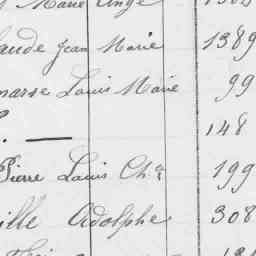 Marie Ange
aude Jean Marie 1389
marre Louis Marie 99
148
Pierre Louis Ch. 199
ille Adolphe 308